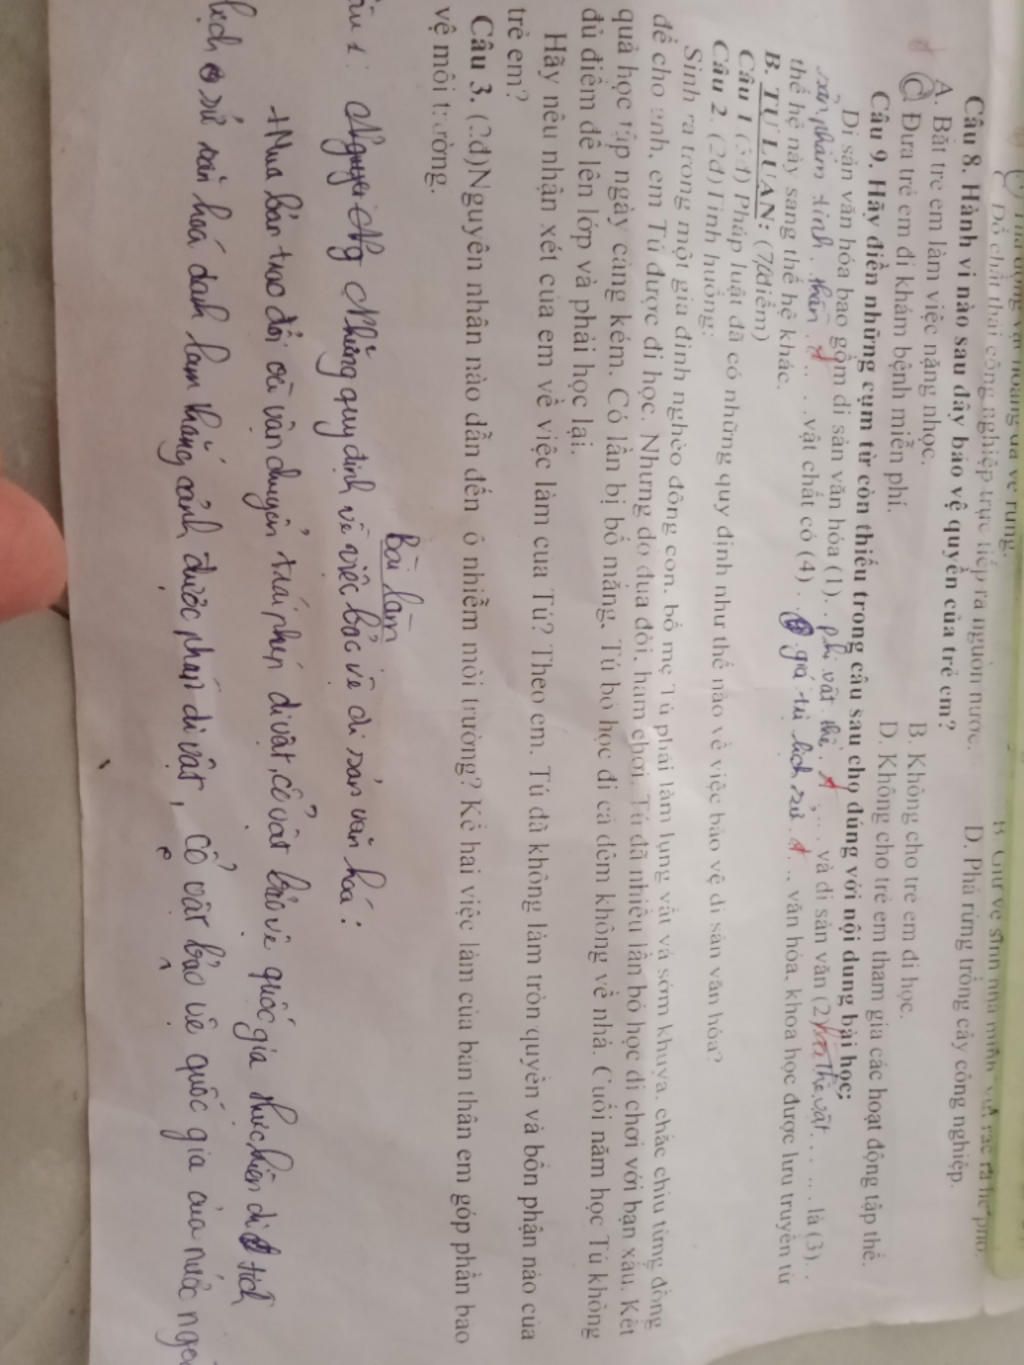 Đổ chất thải công nghiệp trực tiếp ra nguồn nước.
D. Phá rừng trồng cây công nghiệp.
Câu 8. Hành vi nào sau đây bảo vệ quyền của trẻ em?
A. Bắt trẻ em làm việc nặng nhọc.
B. Không cho trẻ em đi học.
C Đưa trẻ em đi khám bệnh miễn phí.
D. Không cho trẻ em tham gia các hoạt động tập thể.
Câu 9. Hãy điền những cụm từ còn thiếu trong câu sau cho đúng với nội dung bài học:
Di sản văn hóa bao gồm di sản văn hóa (1). . phi vật thể. . . . và di sản văn (2) thể vật. . . . . là (3). .
sản phẩm tinh thần . . . vật chất có (4) . . giá trị lịch sử . . ., văn hóa, khoa học được lưu truyền từ
thế hệ này sang thế hệ khác.
B. TỰ LUẬN: (7điểm)
Câu 1 (3đ) Pháp luật đã có những quy định như thế nào về việc bảo vệ di sản văn hóa?
Câu 2. (2đ) Tình huống:
Sinh ra trong một gia đình nghèo đông con, bố mẹ Tú phải làm lụng vất vả sớm khuya, chắc chiu từng đồng
để cho anh, em Tú được đi học. Nhưng do đua đòi, ham chơi, Tú đã nhiều lần bỏ học đi chơi với bạn xấu. Kết
quả học tập ngày càng kém. Có lần bị bố mắng, Tú bỏ học đi cả đêm không về nhà. Cuối năm học Tú không
đủ điểm để lên lớp và phải học lại.
Hãy nêu nhận xét của em về việc làm của Tú? Theo em, Tú đã không làm tròn quyền và bổn phận nào của
trẻ em?
Câu 3. (2đ)Nguyên nhân nào dẫn đến ô nhiễm môi trường? Kể hai việc làm của bản thân em góp phần bảo
vệ môi trường.
Bài làm
Câu 1: Những quy định về việc bảo vệ di sản văn hoá :
+Mua bán trao đổi và vận chuyển trái phép di vật, cổ vật bảo vệ quốc gia thực hiện di tích
lịch sử văn hoá danh lam thắng cảnh được phép di vật, cổ vật bảo vệ quốc gia của nước ngoài